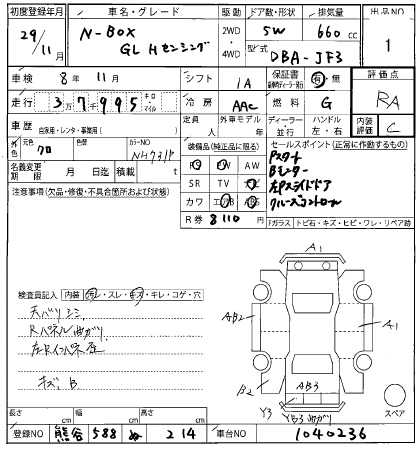 初度登録年月 車名・グレード 駆動 ドア数・形状 排気量 出品NO
29/11月 N-BOX GL Hセンシング 2WD・4WD 5W 660 cc 1
型式 DBA-JF3
車検 8年 11月 シフト IA 保証書 有・無 評価点
走行 37995 キロ・マイル 冷房 AAC 燃料 G RA
車歴 自家用・レンタ・事業用( ) 定員 人 外車モデル 年 ディーラー・並行 ハンドル 左・右 内装評価 C
外色 元色 クロ 色替 カラーNO NH731P
装備品(純正品に限る) セールスポイント(正常に作動するもの)
名義変更期限 月 日迄 積載 t
PS PW AW
SR TV ナビ
カワ エアB ABS
R券 8110 円
Pスタート
Bモニター
左Pスライドドア
クルーズコントロール
注意事項(欠品・修復・不具合箇所および状態)
Fガラス トビ石・キズ・ヒビ・ワレ・リペア跡
検査員記入 内装 汚レ・スレ・キズ・キレ・コゲ・穴
天バリシミ
Rパネル曲ガリ
キズ、B
A1
AB2
A1
B2
AB3
Y3
YB3 曲ガリ
スペア
長さ cm 幅 cm 高さ cm
登録NO 熊谷 588 214 車台NO 1040236